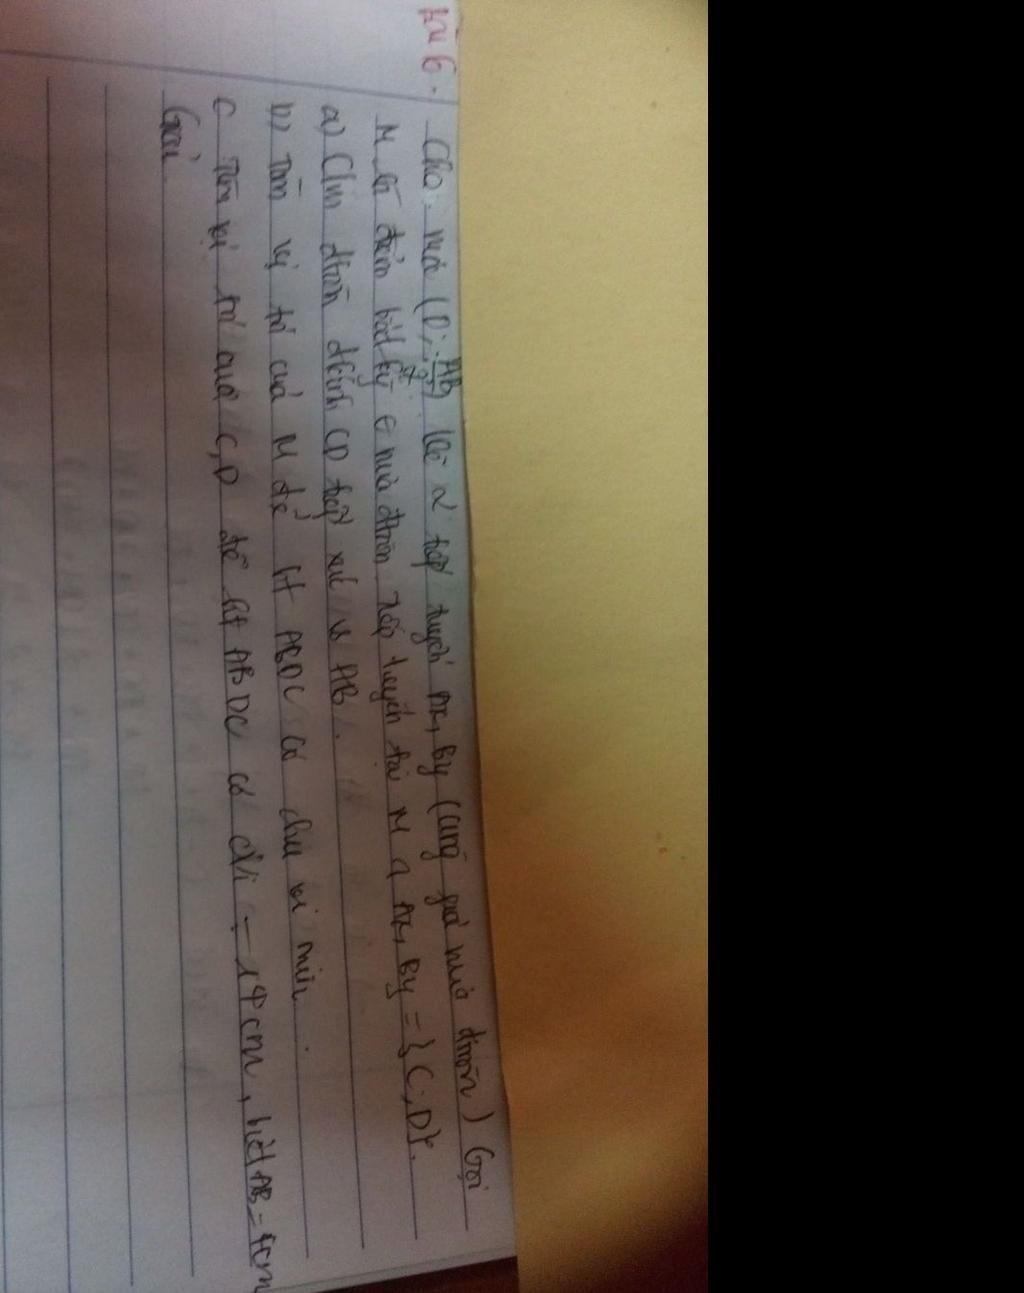 Bài 6. Cho nửa (O; AB/2) kẻ 2 tiếp tuyến Ax, By (cùng phía nửa đtròn) Gọi
M là điểm bất kỳ ∈ nửa đtròn tiếp tuyến tại M ∩ Ax, By = {C; D}.
a) Cm đtròn đkính CD tiếp xúc vs AB.
b) Tìm vị trí của M để ht ABDC có chu vi min.
c Tìm vị trí của C, D để ht ABDC có chi = 14cm, biết AB = 4cm
Giải